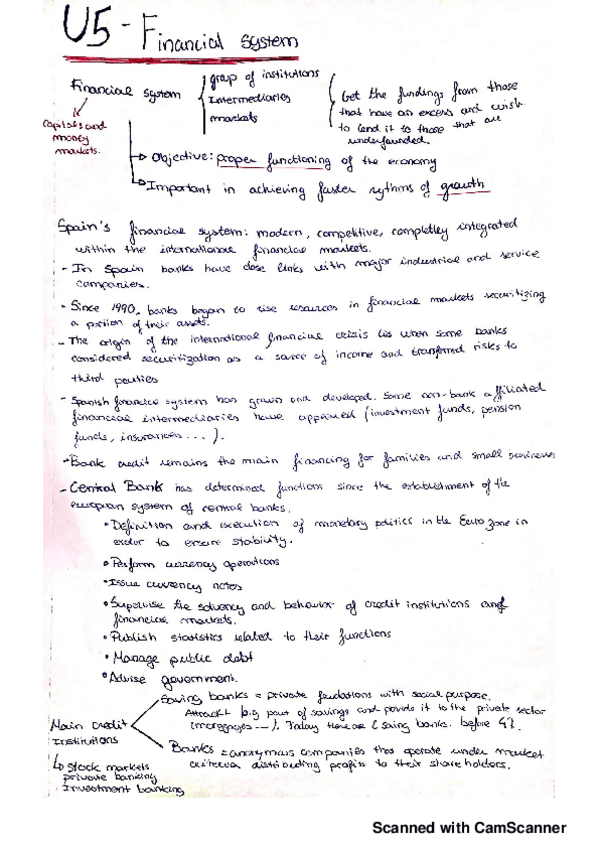 U5 - Financial system
Financial system
group of institutions
Intermediaries
markets
Get the fundings from those
that have an excess and wish
to lend it to those that are
underfunded.
capitals and
money
markets.
Objective: proper functioning of the economy
Important in achieving faster rythms of growth
Spain's financial system: modern, competitive, completley integrated
within the international financial markets.
- In Spain banks have close links with major industrial and service
companies.
- Since 1990, banks began to rise resources in financial markets securitizing
a portion of their assets.
- The origin of the international financial crisis is when some banks
considered securitization as a source of income and transfered risks to
third parties
- Spanish financial system has grown and developed. Some non-bank affiliated
financial intermediaries have appeared (investment funds, pension
funds, insurances ... ).
- Bank credit remains the main financing for families and small business
- Central Bank has determined functions since the establishment of the
european system of central banks.
• Definition and execution of monetary politics in the Euro zone in
order to ensure stability.
• Perform currency operations
• Issue currency notes
• Supervise the solvency and behavior of credit institutions and
financial markets.
• Publish statistics related to their functions
• Manage public debt
• Advise government.
Main credit
Institutions
Saving banks = private fundations with social purpose.
Attract big part of savings and provide it to the private sector
(mortgages ...). Today there are saving banks. before 47.
Banks = anonymous companies that operate under market
criteria distributing profits to their shareholders.
stock markets
private banking
Investment banking
Scanned with CamScanner